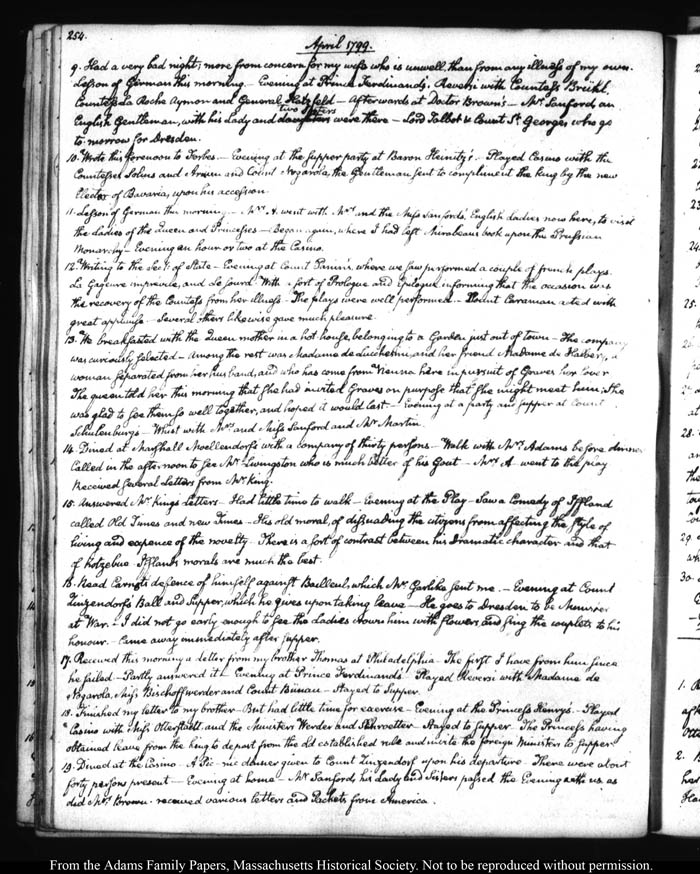 254.
April 1799.
9. Had a very bad night; more from concern for my wife who is unwell, than from any illness of my own.
Lesson of German this morning — Evening at Prince Ferdinand's. Reversi with Countess Breühl,
Countess La Roche Aymon and General Hatzfeld — Afterwards at Doctor Brown's — Mr. Sanford, an
English Gentleman, with his Lady and two sisters daughters were there — Lord Talbot & Count St. George, who go
to morrow for Dresden.
10. Wrote this forenoon to Forbes — Evening at the supper party at Baron Heinitz's. Played Casino with the
Countesses Solms and Arnim and Count Nogarola, the Gentleman sent to compliment the king by the new
Elector of Bavaria, upon his accession.
11. Lesson of German this morning — Mrs. A. went with Mrs. and the Miss Sanfords, English Ladies now here, to visit
the Ladies of the Queen and Princesses — Began again, where I had left Mirabeau's book upon the Prussian
Monarchy — Evening an hour or two at the Casino.
12. Writing to the Secy. of State — Evening at Count Panin's, where we saw performed a couple of french plays.
La Gageure imprevue, and Le sourd. With a sort of Prologue and Epilogue informing that the occasion was
the recovery of the Countess from her illness — The plays were well performed — Count Caraman acted with
great applause — Several others likewise gave much pleasure.
13. We breakfasted with the Queen mother in a hot house, belonging to a Garden just out of town — The company
was curiously selected — Among the rest was Madame de Lucchesini, and her friend Madame de
woman separated from her husband, and who has come from Vienna here in pursuit of Graves her lover
The queen told her this morning that she had invited Graves on purpose that she might meet him; She
was glad to see them so well together, and hoped it would last — Evening at a party and supper at Count
Schulenburg's — Whist with Mrs. and Miss Sanford and Mr. Martin.
14. Dined at Marshall Moellendorf's with a company of thirty persons — Walk with Mrs. Adams before dinner
Called in the afternoon to see Mr. Livingston who is much better of his Gout — Mrs. A. went to the play
Received several Letters from Mr. King.
15. Answered Mr. King's Letters — Had little time to walk — Evening at the Play — Saw a Comedy of Iffland
called Old Times and new Times — His old moral, of dissuading the citizens from affecting the style of
living and expence of the novelty — There is a sort of contrast between his Dramatic character and that
of Kotzebue — Iffland's morals are much the best.
16. Read Carnot's defence of himself against Bailleul, which Mr. Garlike sent me. — Evening at Count
Zinzendorf's Ball and Supper, which he gives upon taking leave — He goes to Dresden to be Minister
at War. — I did not go early enough to see the Ladies strew him with flowers, and sing the couplets to his
honour. — Came away immediately after supper.
17. Received this morning a letter from my brother Thomas at Philadelphia — The first I have from him since
he sailed — Partly answered it — Evening at Prince Ferdinand's — Played Reversi with Madame de
Nogarola, Miss Bischoffwerder and Count Bünau — Stayed to Supper.
18. Finished my letter to my brother — But had little time for exercise — Evening at the Princess Henry's. Played
Casino with Miss Otterstaedt, and the Ministers Werder and Schroetter — Stayed to supper — The Princess having
obtained leave from the king to depart from the old established rule and invite the foreign Ministers to supper
19. Dined at the Casino. A Pic-nic dinner given to Count Zinzendorf upon his departure — There were about
forty persons present — Evening at home — Mr. Sanford, his Lady and Sisters passed the Evening with us as
did Mrs. Brown. received various letters and Packets from America.
From the Adams Family Papers, Massachusetts Historical Society. Not to be reproduced without permission.